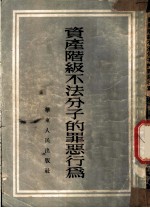 資產階級不法分子的罪惡行為
華東人民出版社